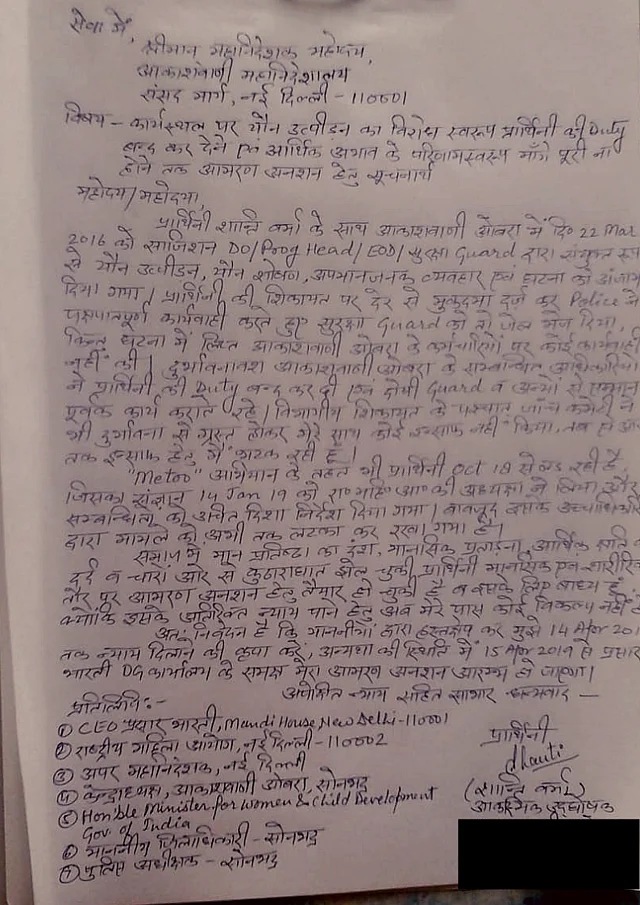 सेवा में,
श्रीमान महानिदेशक महोदय,
आकाशवाणी महानिदेशालय
संसद मार्ग, नई दिल्ली - 110001
विषय - कार्यस्थल पर यौन उत्पीड़न का विरोध स्वरूप प्रार्थिनी की Duty
बन्द कर देने एवं आर्थिक अभाव के परिणामस्वरूप माँगे पूरी ना
होने तक आमरण अनशन हेतु सूचनार्थ
महोदय/महोदया,
प्रार्थिनी शान्ति वर्मा के साथ आकाशवाणी ओबरा में दि० 22 Mar
2016 को साजिशन DO/Prog Head/EOD/सुरक्षा Guard द्वारा संयुक्त रूप
से यौन उत्पीड़न, यौन शोषण, अपमानजनक व्यवहार एवं घटना को अंजाम
दिया गया। प्रार्थिनी की शिकायत पर देर से मुकदमा दर्ज कर Police ने
पक्षपातपूर्ण कार्यवाही करते हुए सुरक्षा Guard को तो जेल भेज दिया,
किन्तु घटना में लिप्त आकाशवाणी ओबरा के कर्मचारियों पर कोई कार्यवाही
नहीं की। दुर्भावनावश आकाशवाणी ओबरा के सम्बन्धित अधिकारियों
ने प्रार्थिनी की Duty बन्द कर दी एवं दोषी Guard व अन्यों से सम्मान
पूर्वक कार्य कराते रहे। विभागीय शिकायत के पश्चात जाँच कमेटी ने
भी दुर्भावना से ग्रस्त होकर मेरे साथ कोई इन्साफ नहीं किया, तब से आज
तक इन्साफ हेतु मैं भटक रही हूँ।
"Metoo" अभियान के तहत भी प्रार्थिनी Oct 18 से लड़ रही है,
जिसका संज्ञान 14 Jan 19 को रा० महि० आ० की अध्यक्षा ने लिया और
सम्बन्धित को उचित दिशा निर्देश दिया गया। बावजूद इसके उच्चाधिकारियों
द्वारा मामले को अभी तक लटका कर रखा गया है।
समाज में मान प्रतिष्ठा का दंश, मानसिक प्रताड़ना, आर्थिक क्षति का
दर्द व चारों ओर से कुठाराघात झेल चुकी प्रार्थिनी मानसिक एवं शारीरिक
तौर पर आमरण अनशन हेतु तैयार हो चुकी है व इसके लिए बाध्य हूँ
क्योंकि इसके अतिरिक्त न्याय पाने हेतु अब मेरे पास कोई विकल्प नहीं है
अतः निवेदन है कि माननीयों द्वारा हस्तक्षेप कर मुझे 14 Apr 201
तक न्याय दिलाने की कृपा करें, अन्यथा की स्थिति में 15 Apr 2019 से प्रसार
भारती DG कार्यालय के समक्ष मेरा आमरण अनशन आरम्भ हो जाएगा।
अपेक्षित न्याय सहित सादर धन्यवाद —
प्रतिलिपि:-
① CEO प्रसार भारती, Mandi House, New Delhi-110001
② राष्ट्रीय महिला आयोग, नई दिल्ली - 110002
③ अपर महानिदेशक, नई दिल्ली
④ केन्द्राध्यक्ष, आकाशवाणी ओबरा, सोनभद्र
⑤ Hon'ble Minister for Women & Child Development
Gov. of India
⑥ माननीय जिलाधिकारी - सोनभद्र
⑦ पुलिस अधीक्षक - सोनभद्र
प्रार्थिनी
Shanti
(शान्ति वर्मा)
आकस्मिक उद्घोषक